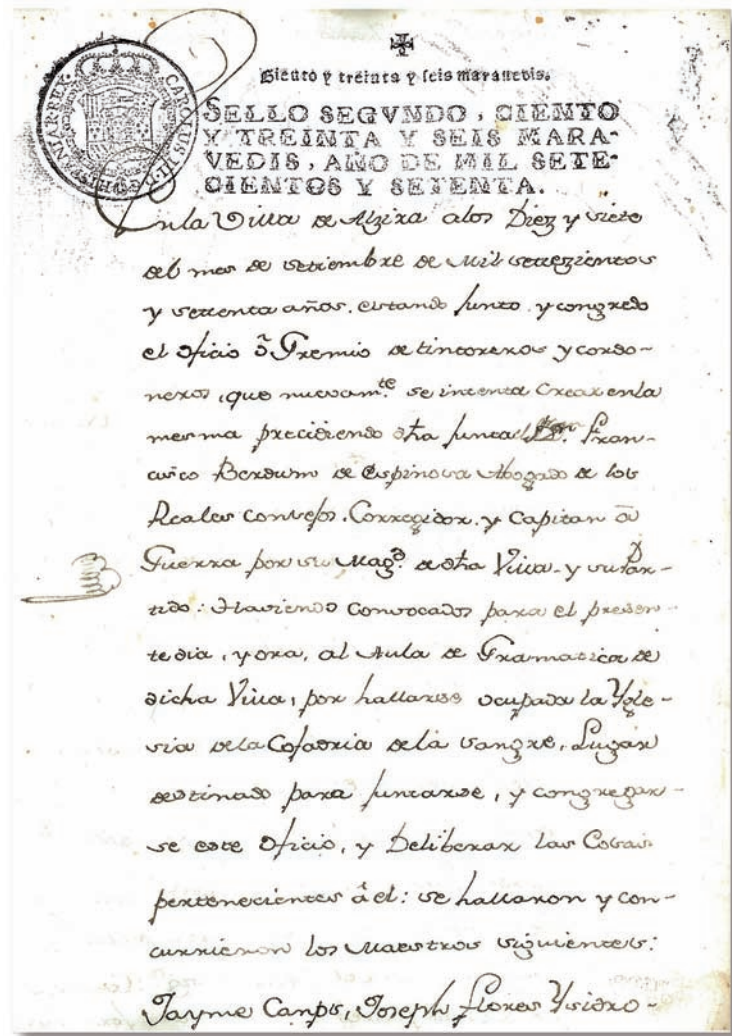 CAROLUS III D G HISPANIAR REX
Siento y treinta y seis marauedis.
SELLO SEGVNDO, CIENTO
Y TREINTA Y SEIS MARA-
VEDIS, AÑO DE MIL SETE-
CIENTOS Y SETENTA.
En la Villa de Alzira a los Diez y siete
del mes de setiembre de Mil setezientos
y setenta años. estando junto, y congredo
el oficio ô Gremio de tintoreros y cordo-
neros, que nuevamte se intenta Crear en la
mesma precidiendo dha junta Dn. Fran-
cisco Berdum de Espinosa Abogado de los
Reales consejos. Corregidor, y Capitan â
Guerra por su Magd. de dha Villa y su Par-
tido: Haviendo Convocados para el presen-
te dia, y ora, al Aula de Gramatica de
dicha Villa, por hallarse ocupada la Ygle-
sia de la Cofadria de la sangre, Lugar
destinado para juntarse, y congregar-
se este Oficio, y Deliberar las Cosas
pertenecientes â el: se hallaron y con-
currieron los Maestros siguientes:
Jayme Camps, Joseph Flores Ysidro-